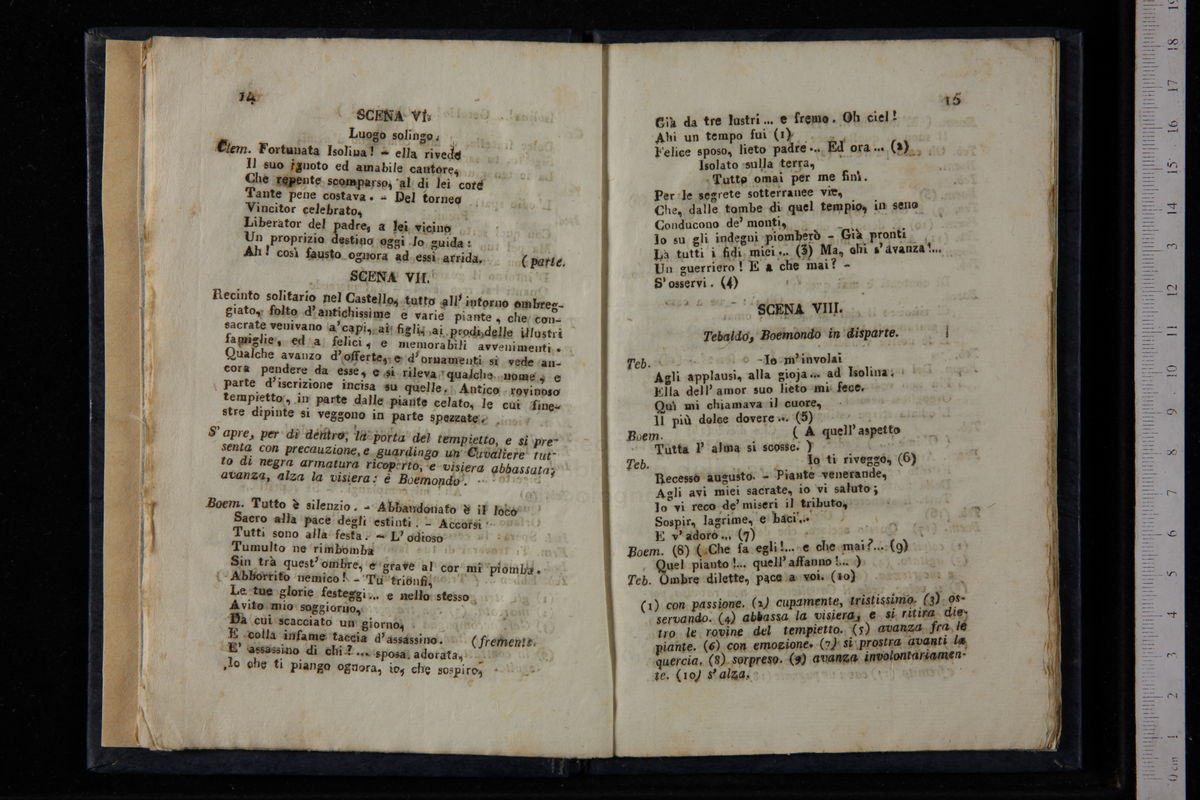 14
SCENA VI.
Luogo solingo.
Clem. Fortunata Isolina! - ella rivede
Il suo ignoto ed amabile cantore,
Che repente scomparso, al di lei core
Tante pene costava. - Del torneo
Vincitor celebrato,
Liberator del padre, a lei vicino
Un proprizio destino oggi lo guida:
Ah! così fausto ognora ad essi arrida. (parte.
SCENA VII.
Recinto solitario nel Castello, tutto all' intorno ombreg-
giato, folto d'antichissime e varie piante, che con-
sacrate venivano a'capi, ai figli, ai prodi delle illustri
famiglie, ed a felici, e memorabili avvenimenti.
Qualche avanzo d'offerte, e d'ornamenti si vede an-
cora pendere da esse, e si rileva qualche nome, e
parte d'iscrizione incisa su quelle. Antico rovinoso
tempietto, in parte dalle piante celato, le cui fine-
stre dipinte si veggono in parte spezzate.
S'apre, per di dentro, la porta del tempietto, e si pre-
senta con precauzione, e guardingo un Cavaliere tut-
to di negra armatura ricoperto, e visiera abbassata;
avanza, alza la visiera: è Boemondo.
Boem. Tutto è silenzio. - Abbandonato è il loco
Sacro alla pace degli estinti. - Accorsi
Tutti sono alla festa. - L' odioso
Tumulto ne rimbomba
Sin trà quest' ombre, e grave al cor mi piomba.
Abborrito nemico! - Tu trionfi,
Le tue glorie festeggi... e nello stesso
Avito mio soggiorno,
Da cui scacciato un giorno,
E colla infame taccia d'assassino. (fremente.
E' assassino di chi?... sposa adorata,
Io che ti piango ognora, io, che sospiro,
15
Già da tre lustri... e fremo. Oh ciel!
Ahi un tempo fui (1)
Felice sposo, lieto padre... Ed ora... (2)
Isolato sulla terra,
Tutto omai per me finì.
Per le segrete sotterranee vie,
Che, dalle tombe di quel tempio, in seno
Conducono de' monti,
Io su gli indegni piomberò - Già pronti
Là tutti i fidi miei... (3) Ma, ohi s'avanza!...
Un guerriero! E a che mai? -
S'osservi. (4)
SCENA VIII.
Tebaldo, Boemondo in disparte.
Teb. Io m'involai
Agli applausi, alla gioja... ad Isolina.
Ella dell' amor suo lieto mi fece.
Quì mi chiamava il cuore,
Il più dolce dovere... (5)
Boem. ( A quell'aspetto
Tutta l' alma si scosse. )
Teb. Io ti riveggo, (6)
Recesso augusto. - Piante venerande,
Agli avi miei sacrate, io vi saluto;
Io vi reco de'miseri il tributo,
Sospir, lagrime, e baci...
E v'adoro... (7)
Boem. (8) ( Che fa egli!... e che mai?... (9)
Quel pianto!... quell'affanno!... )
Teb. Ombre dilette, pace a voi. (10)
(1) con passione. (2) cupamente, tristissimo. (3) os-
servando. (4) abbassa la visiera, e si ritira die-
tro le rovine del tempietto. (5) avanza fra le
piante. (6) con emozione. (7) si prostra avanti la
quercia. (8) sorpreso. (9) avanza involontariamen-
te. (10) s'alza.
0 cm 1 2 3 4 5 6 7 8 9 10 11 12 13 14 15 16 17 18 19